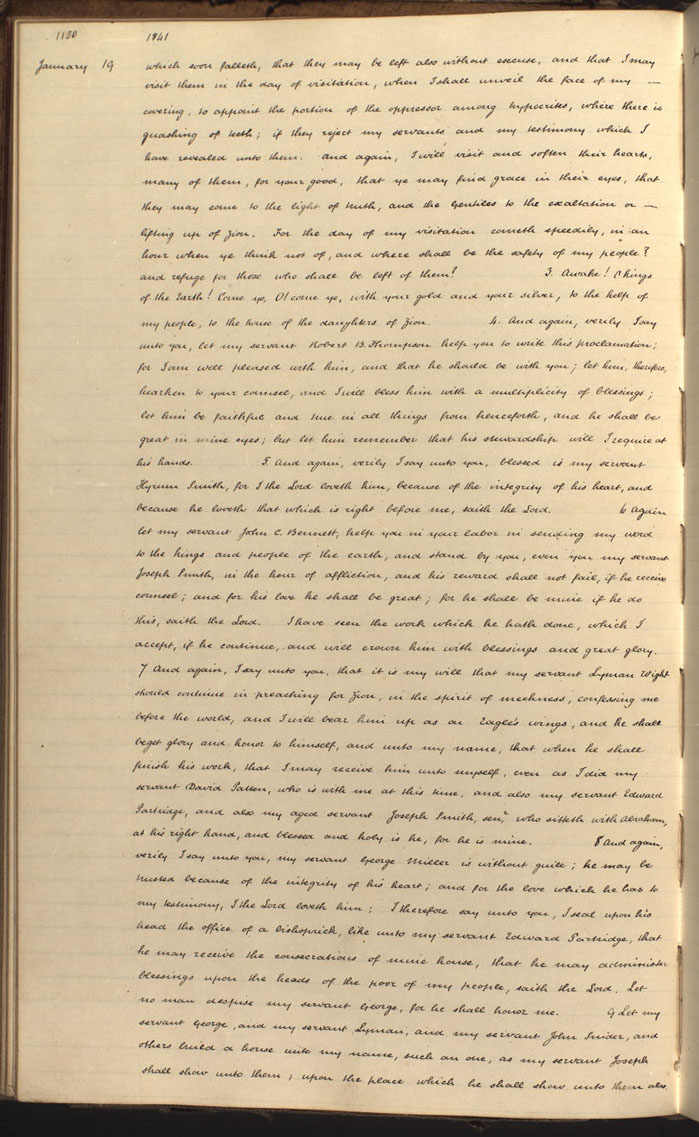 1130 1841
January 19 which soon falleth, that they may be left also without excuse, and that I may
visit them in the day of visitation, when I shall unveil the face of my —
covering, to appoint the portion of the oppressor among hypocrites, where there is
gnashing of teeth; if they reject my servants and my testimony which I
have revealed unto them. and again, I will visit and soften their hearts,
many of them, for your good, that ye may find grace in their eyes, that
they may come to the light of truth, and the Gentiles to the exaltation or —
lifting up of Zion. For the day of my visitation cometh speedily, in an
hour when ye think not of, and where shall be the safety of my people?
and refuge for those who shall be left of them? 3. Awake! O kings
of the Earth! Come ye, O! come ye, with your gold and your silver, to the help of
my people, to the house of the daughters of Zion. 4. And again, verily I say
unto you, let my servant Robert B. Thompson help you to write this proclamation;
for I am well pleased with him, and that he should be with you; let him, therefore,
hearken to your counsel, and I will bless him with a multiplicity of blessings;
let him be faithful and true in all things from henceforth, and he shall be
great in mine eyes; but let him remember that his stewardship will I require at
his hands. 5. And again, verily I say unto you, blessed is my servant
Hyrum Smith, for I the Lord loveth him, because of the integrity of his heart, and
because he loveth that which is right before me, saith the Lord. 6 Again
let my servant John C. Bennett, help you in your labor in sending my word
to the kings and people of the earth, and stand by you, even you my servant
Joseph Smith, in the hour of affliction, and his reward shall not fail, if he receive
counsel; and for his love he shall be great; for he shall be mine if he do
this, saith the Lord. I have seen the work which he hath done, which I
accept, if he continue, and will crown him with blessings and great glory.
7 And again, I say unto you, that it is my will that my servant Lyman Wight
should continue in preaching for Zion, in the spirit of meekness, confessing me
before the world, and I will bear him up as on Eagle's wings, and he shall
beget glory and honor to himself, and unto my name, that when he shall
finish his work, that I may receive him unto myself, even as I did my
servant David Patten, who is with me at this time, and also my servant Edward
Partridge, and also my aged servant Joseph Smith, senr, who sitteth with Abraham,
at his right hand, and blessed and holy is he, for he is mine. 8 And again,
verily I say unto you, my servant George Miller is without guile; he may be
trusted because of the integrity of his heart; and for the love which he has to
my testimony, I the Lord loveth him; I therefore say unto you, I seal upon his
head the office of a bishoprick, like unto my servant Edward Partridge, that
he may receive the consecrations of mine house, that he may administer
blessings upon the heads of the poor of my people, saith the Lord. Let
no man despise my servant George, for he shall honor me. 9 Let my
servant George, and my servant Lyman, and my servant John Snider, and
others build a house unto my name, such an one, as my servant Joseph
shall show unto them; upon the place which he shall show unto them also.